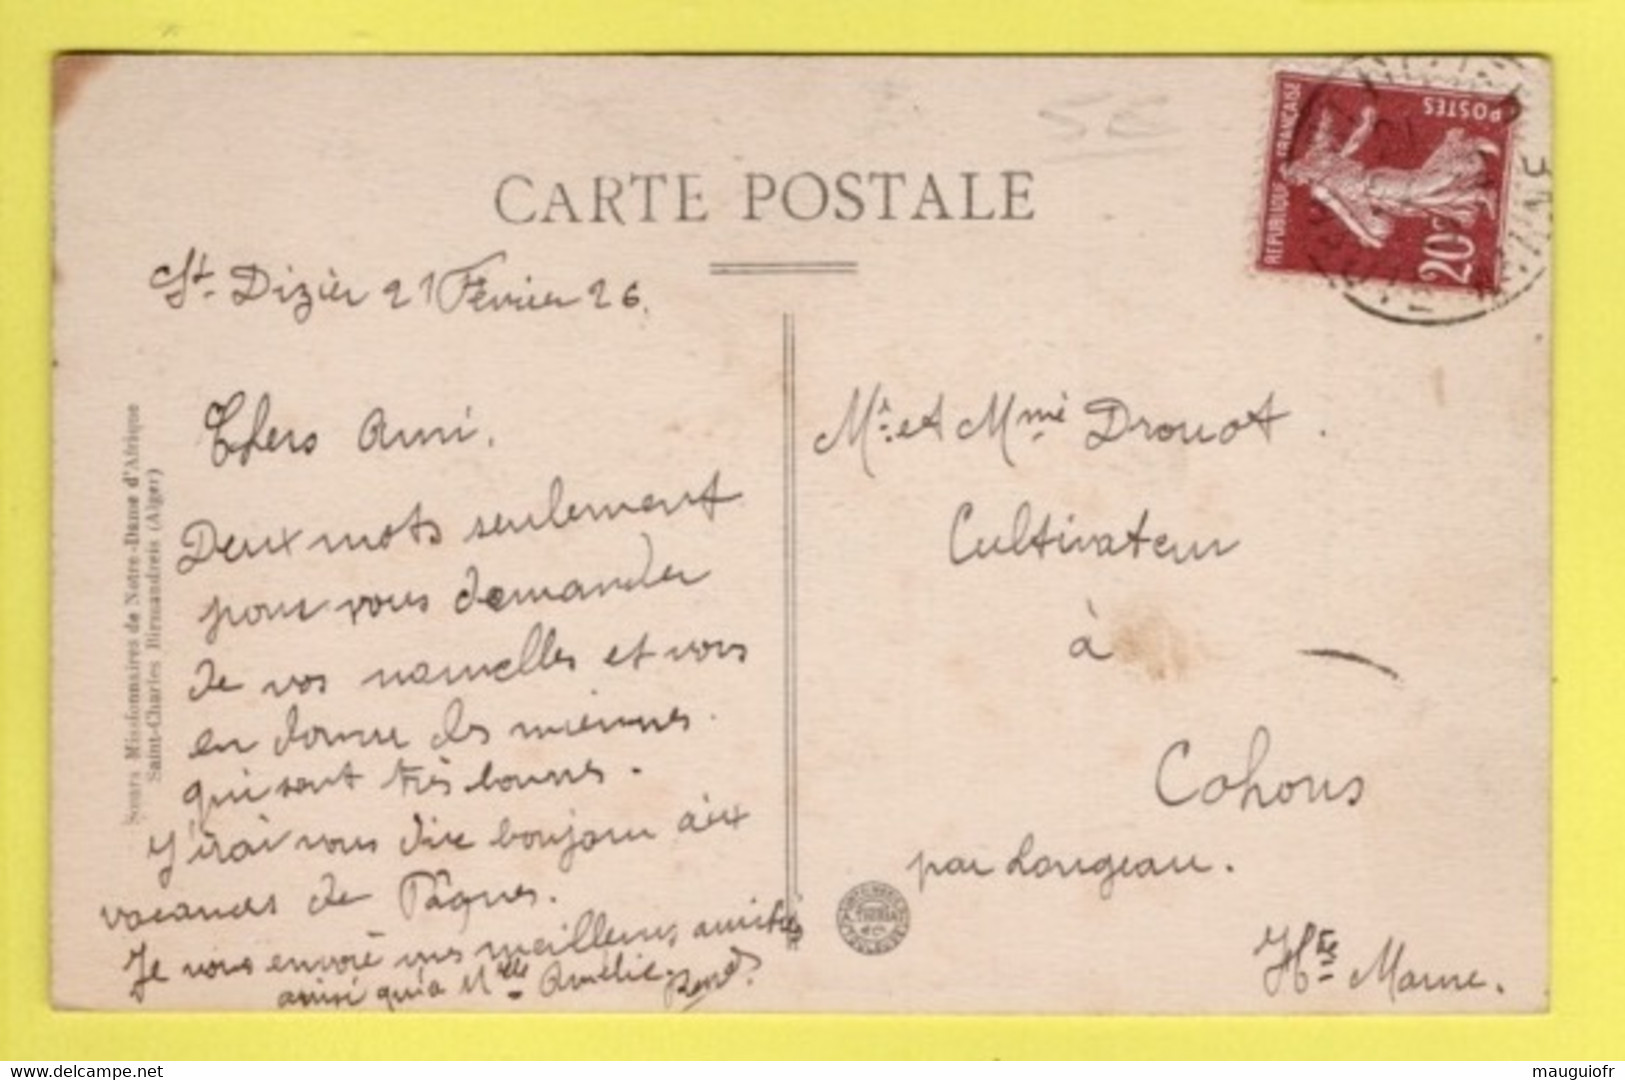 5€
CARTE POSTALE
RÉPUBLIQUE FRANÇAISE
POSTES
20c
St. Dizier 21 Février 26.
Chers Ami.
Deux mots seulement
pour vous demander
de vos nouvelles et vous
en donne des miennes.
qui sont très bonnes.
J'irai vous dire bonjour aux
vacances de Pâques.
Je vous envoie mes meilleures amitiés
ainsi qu'à Melle Amélie.
Sœurs Missionnaires de Notre-Dame d'Afrique
Saint-Charles Birmandreis (Alger)
Mr. et Mme Drouot.
Cultivateur
à
Cohons
par Longeau.
Hte Marne.
mauguiofr